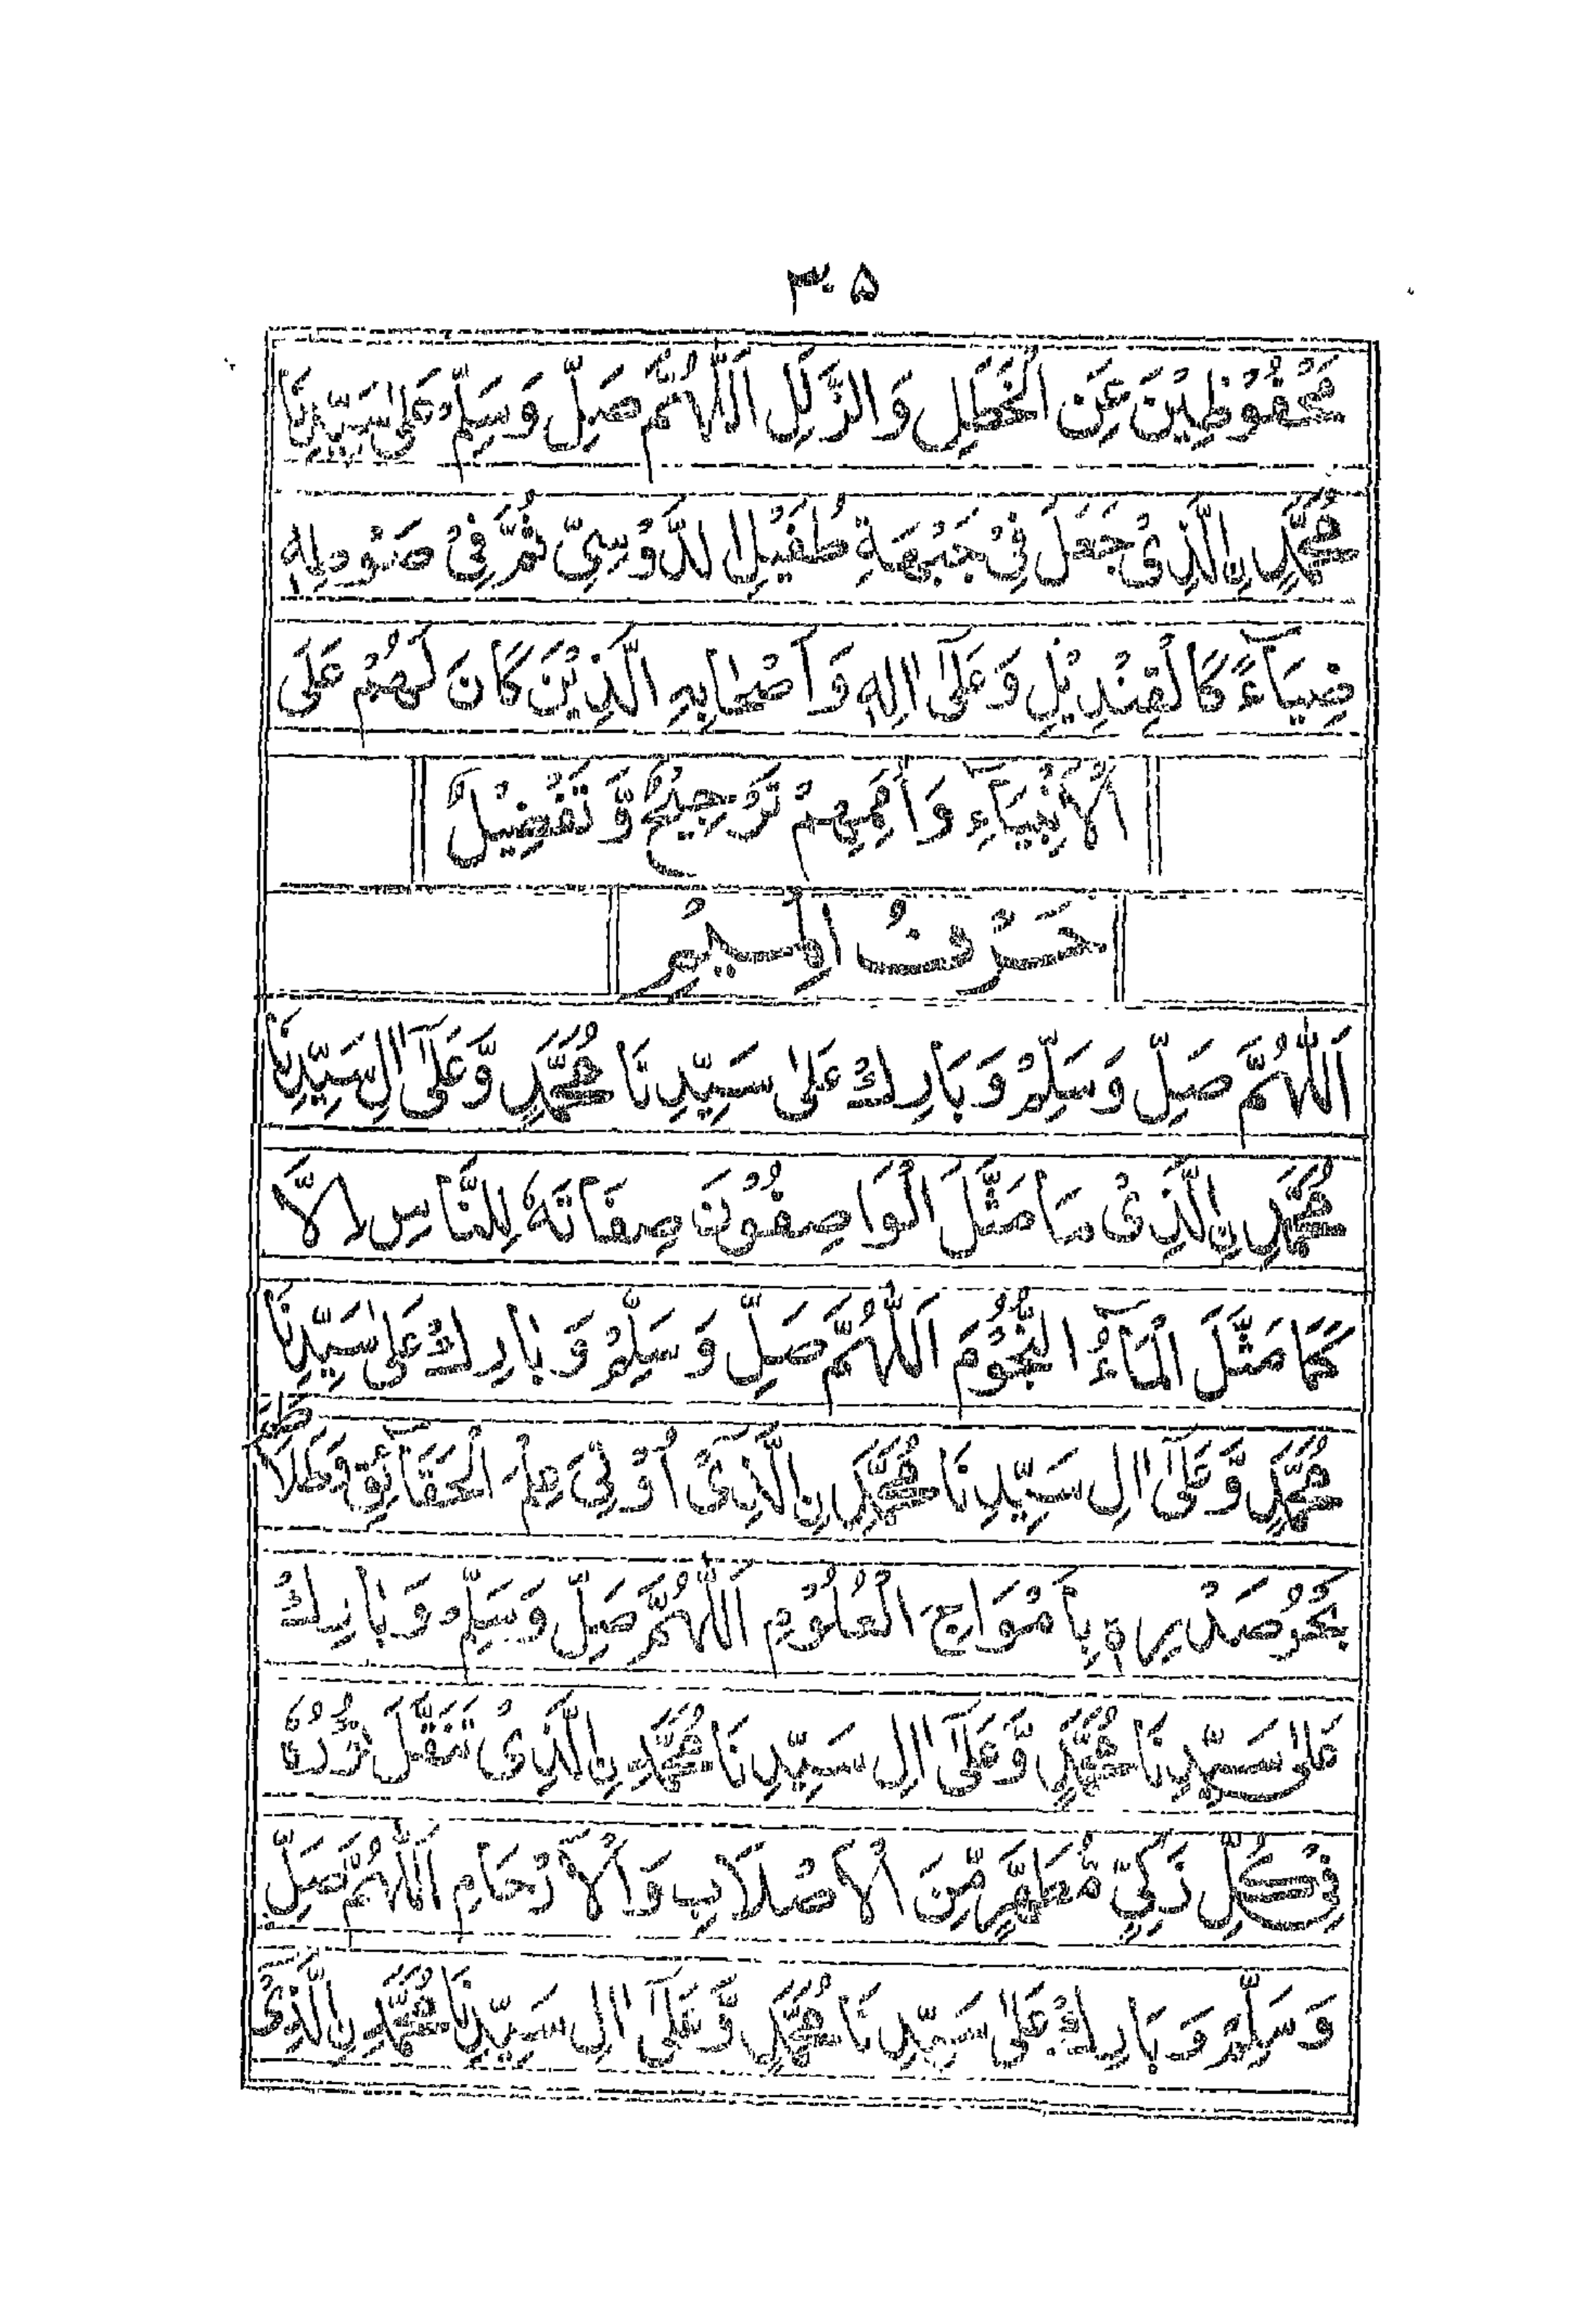 ۳۰۵
مَحْفُوْظِيْنَ عَنِ الْخَطَلِ وَالزَّلَلِ اَللّٰهُمَّ صَلِّ وَسَلِّمْ عَلٰى سَيِّدِنَا
مُحَمَّدِ نِ الَّذِىْ جَعَلَ فِىْ جَبْهَةِ طُفَيْلِ الدَّوْسِىِّ ثُمَّ فِىْ صَوْطِهٖ
ضِيَآءً كَالْقِنْدِيْلِ وَعَلٰٓى اٰلِهٖ وَاَصْحَابِهِ الَّذِيْنَ كَانَ لَهُمْ عَلَى
الْاَنْبِيَآءِ وَاُمَمِهِمْ تَرْجِيْحٌ وَّتَفْضِيْلٌ
حَرْفُ الْمِيْمِ
اَللّٰهُمَّ صَلِّ وَسَلِّمْ وَبَارِكْ عَلٰى سَيِّدِنَا مُحَمَّدٍ وَّعَلٰٓى اٰلِ سَيِّدِنَا
مُحَمَّدِ نِ الَّذِىْ مَا مَثَّلَ الْوَاصِفُوْنَ صِفَاتَهٗ لِلنَّاسِ اِلَّا
كَمَا مَثَّلَ الْمَآءُ النُّجُوْمَ اَللّٰهُمَّ صَلِّ وَسَلِّمْ وَبَارِكْ عَلٰى سَيِّدِنَا
مُحَمَّدٍ وَّعَلٰٓى اٰلِ سَيِّدِنَا مُحَمَّدِ نِ الَّذِىْٓ اُوْتِىَ عِلْمَ الْحَقَآئِقِ وَتَلَاطَمَ
بَحْرُ صَدْرِهٖ بِاَمْوَاجِ الْعُلُوْمِ اَللّٰهُمَّ صَلِّ وَسَلِّمْ وَبَارِكْ
عَلٰى سَيِّدِنَا مُحَمَّدٍ وَّعَلٰٓى اٰلِ سَيِّدِنَا مُحَمَّدِ نِ الَّذِىْ تَنَقَّلَ نُوْرُهٗ
فِىْ كُلِّ زَكِىٍّ مُّطَهَّرٍ مِّنَ الْاَصْلَابِ وَالْاَرْحَامِ اَللّٰهُمَّ صَلِّ
وَسَلِّمْ وَبَارِكْ عَلٰى سَيِّدِنَا مُحَمَّدٍ وَّعَلٰٓى اٰلِ سَيِّدِنَا مُحَمَّدِ نِ الَّذِىْ